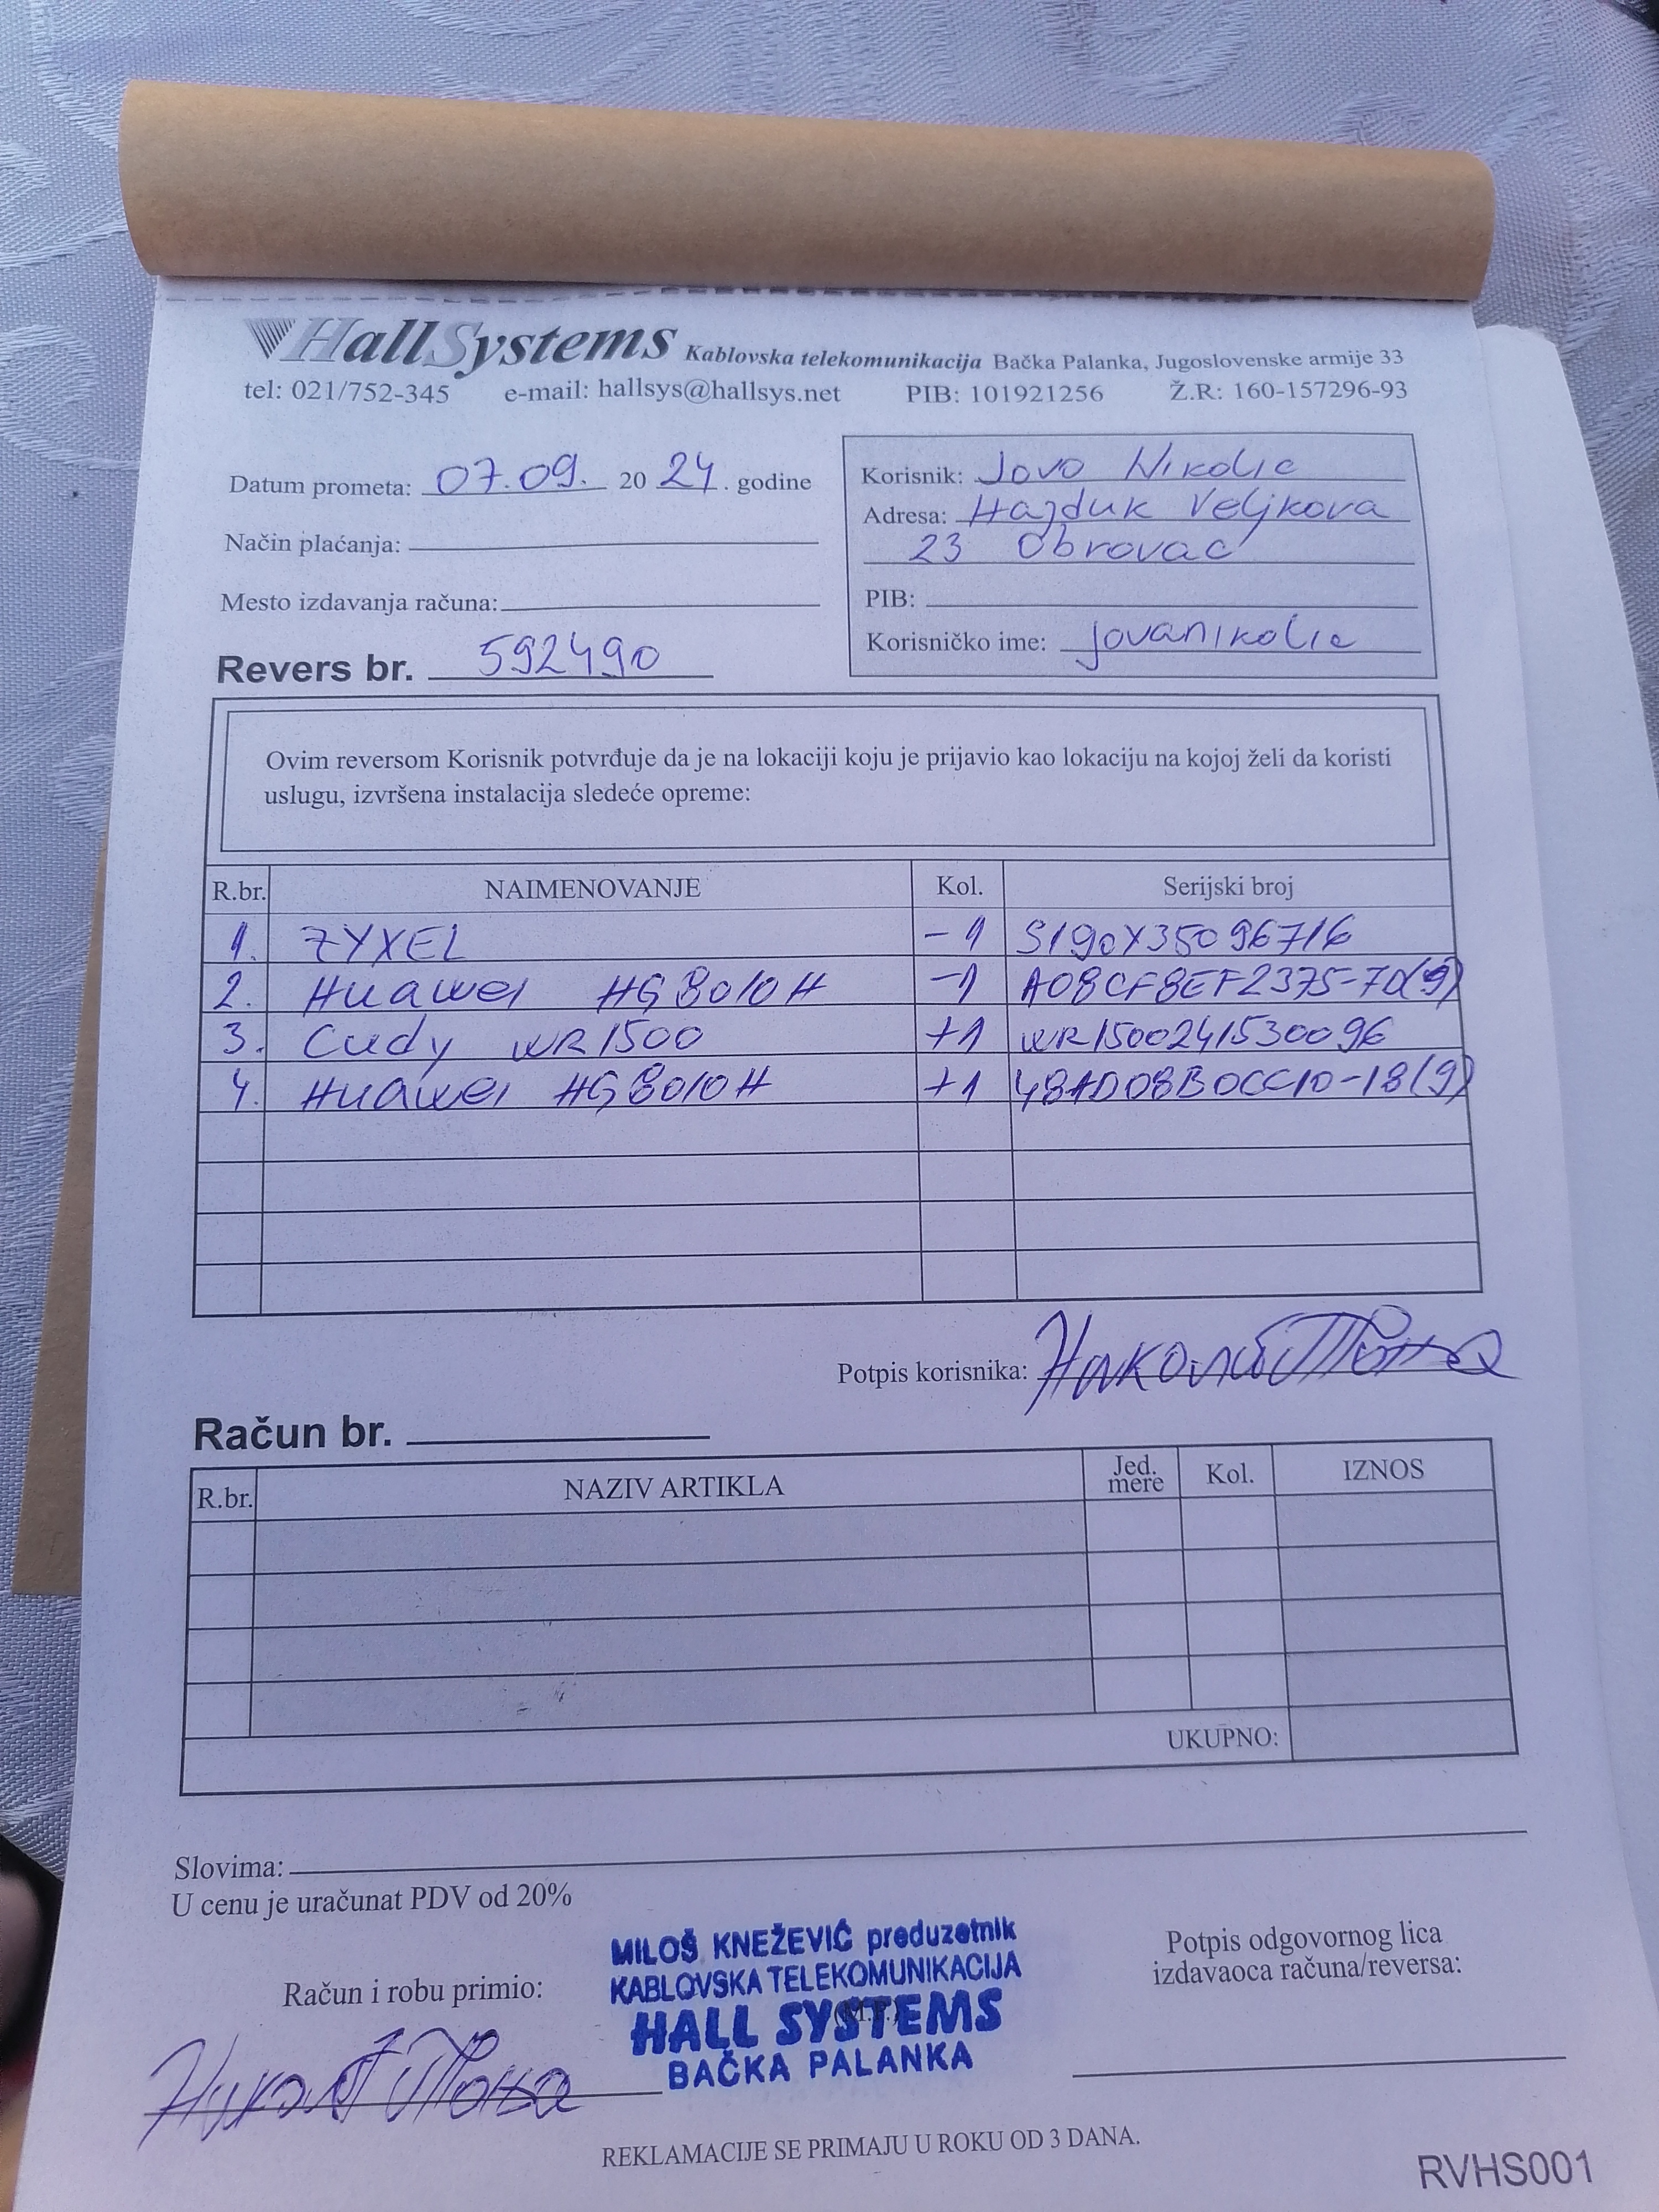 HallSystems Kablovska telekomunikacija Bačka Palanka, Jugoslovenske armije 33
tel: 021/752-345 e-mail: hallsys@hallsys.net PIB: 101921256 Ž.R: 160-157296-93
Datum prometa: 07.09. 20 24. godine
Način plaćanja:
Mesto izdavanja računa:
Revers br. 592490
Korisnik: Jovo Nikolic
Adresa: Hajduk Veljkova
23 Obrovac
PIB:
Korisničko ime: jovanikolic
Ovim reversom Korisnik potvrđuje da je na lokaciji koju je prijavio kao lokaciju na kojoj želi da koristi
uslugu, izvršena instalacija sledeće opreme:
R.br. NAIMENOVANJE Kol. Serijski broj
1. ZYXEL -1 S190Y35096716
2. Huawei HG8010H -1 A08CF8EF2375-7D(9)
3. Cudy WR1500 +1 WR1500241530096
4. Huawei HG8010H +1 48AD08B0CC10-18(9)
Potpis korisnika:
Račun br.
R.br. NAZIV ARTIKLA Jed. mere Kol. IZNOS
UKUPNO:
Slovima:
U cenu je uračunat PDV od 20%
Račun i robu primio:
MILOŠ KNEŽEVIĆ preduzetnik
KABLOVSKA TELEKOMUNIKACIJA
HALL SYSTEMS
BAČKA PALANKA
(M.P.)
Potpis odgovornog lica
izdavaoca računa/reversa:
REKLAMACIJE SE PRIMAJU U ROKU OD 3 DANA.
RVHS001